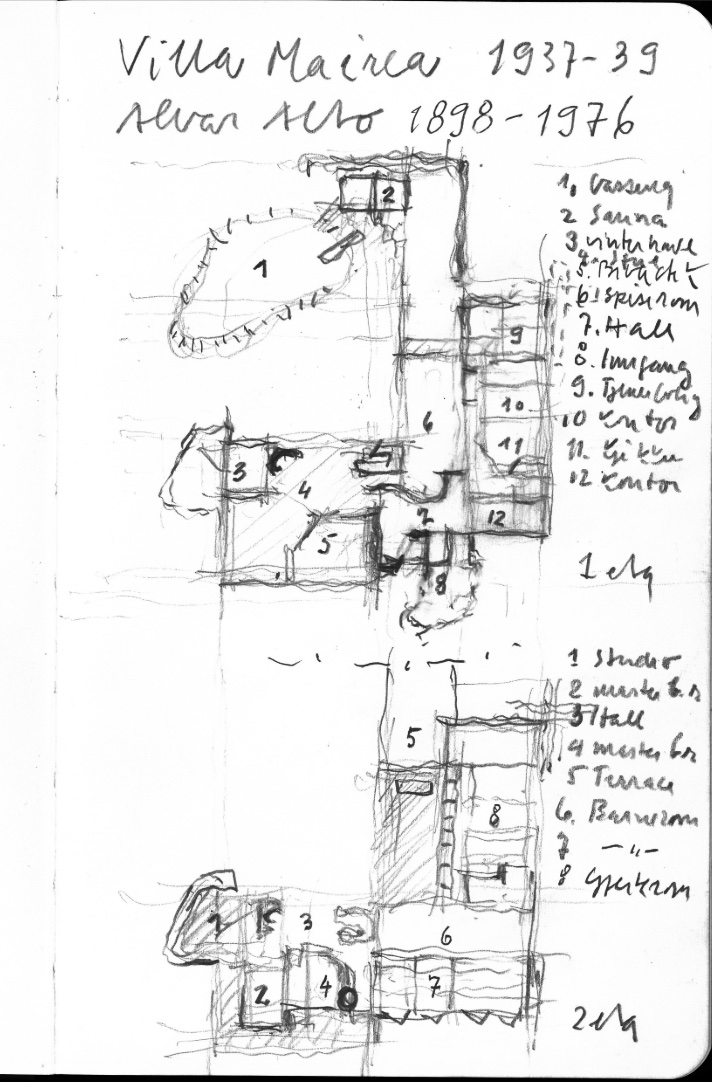 Villa Mairea 1937-39
Alvar Alto 1898-1976
2
1
9
10
6
11
3
4
5
7
12
8
1. Basseng
2 Sauna
3 vinterhave
4. stue
5. Bibliotek
6. Spiserom
7. Hall
8. Inngang
9. Tjenerbolig
10 Kontor
11. Kjøkken
12 Kontor
1 etg
1 Studio
2 master b.r
3 Hall
4 master br
5 Terrace
6. Barnerom
7 -"-
8 Gjesterom
5
8
1
3
6
2
4
7
2 etg